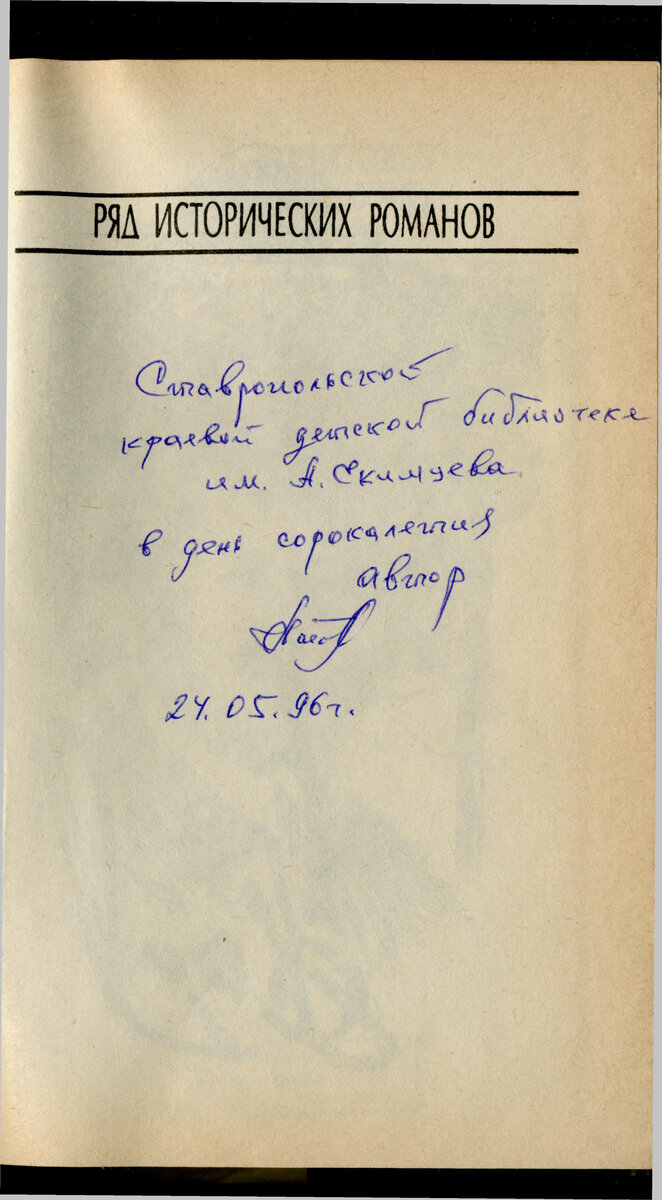 РЯД ИСТОРИЧЕСКИХ РОМАНОВ
Ставропольской
краевой детской библиотеке
им. А. Екимцева
в день сорокалетия
автор
24.05.96г.